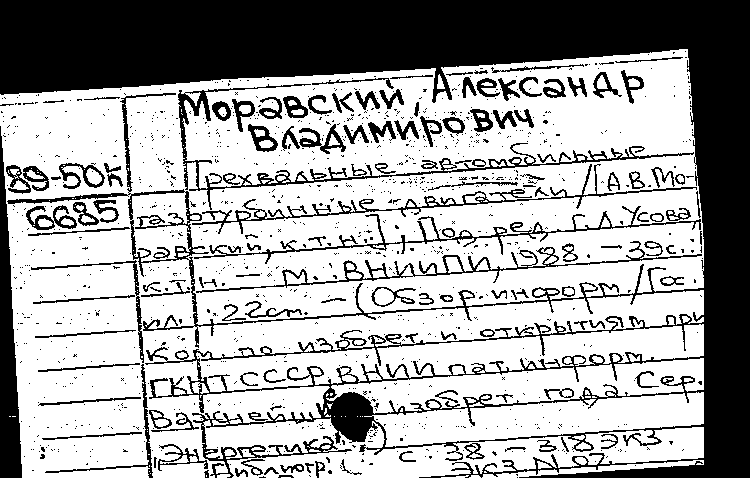 Моравский, Александр
Владимирович.
89-50к
Трехвальные автомобильные
6685
газотурбинные двигатели / [А.В. Мо-
равский, к.т.н.]; Под ред. Г.Л. Усова,
к.т.н. - М.: ВНИИПИ, 1988. - 39с.:
ил.; 22см. - (Обзор. информ. / Гос.
ком. по изобрет. и открытиям при
ГКНТ СССР, ВНИИ пат. информ.
Важнейшие изобрет. года. Сер.
"Энергетика")
с. 38. - 318 экз.
Библиогр.:
экз N 07